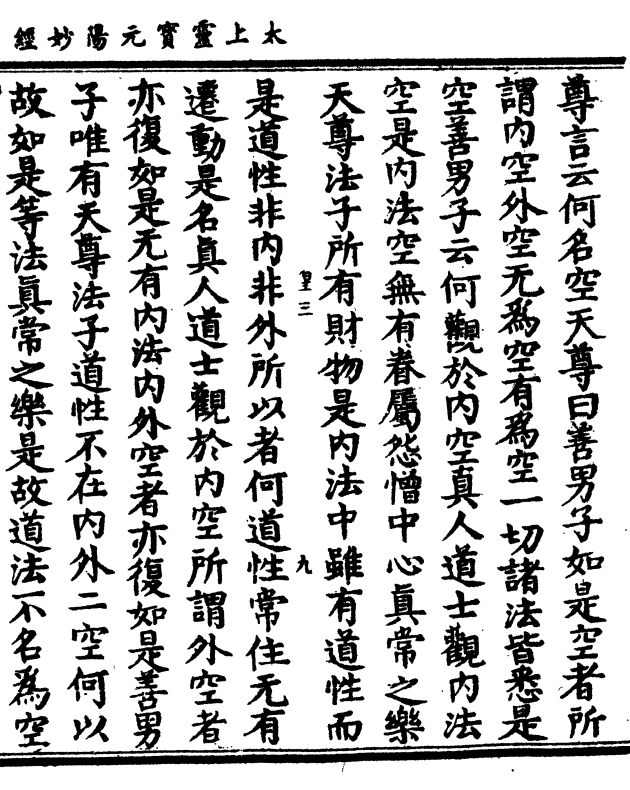 太上靈寶元陽妙經
尊言云何名空天尊曰善男子如是空者所
謂内空外空无爲空有爲空一切諸法皆悉是
空善男子云何觀於内空真人道士觀内法
空是内法空無有眷屬怨憎中心真常之樂
天尊法子所有財物是内法中雖有道性而
皇三
九
是道性非内非外所以者何道性常住无有
遷動是名真人道士觀於内空所謂外空者
亦復如是无有内法内外空者亦復如是善男
子唯有天尊法子道性不在内外二空何以
故如是等法真常之樂是故道法不名爲空